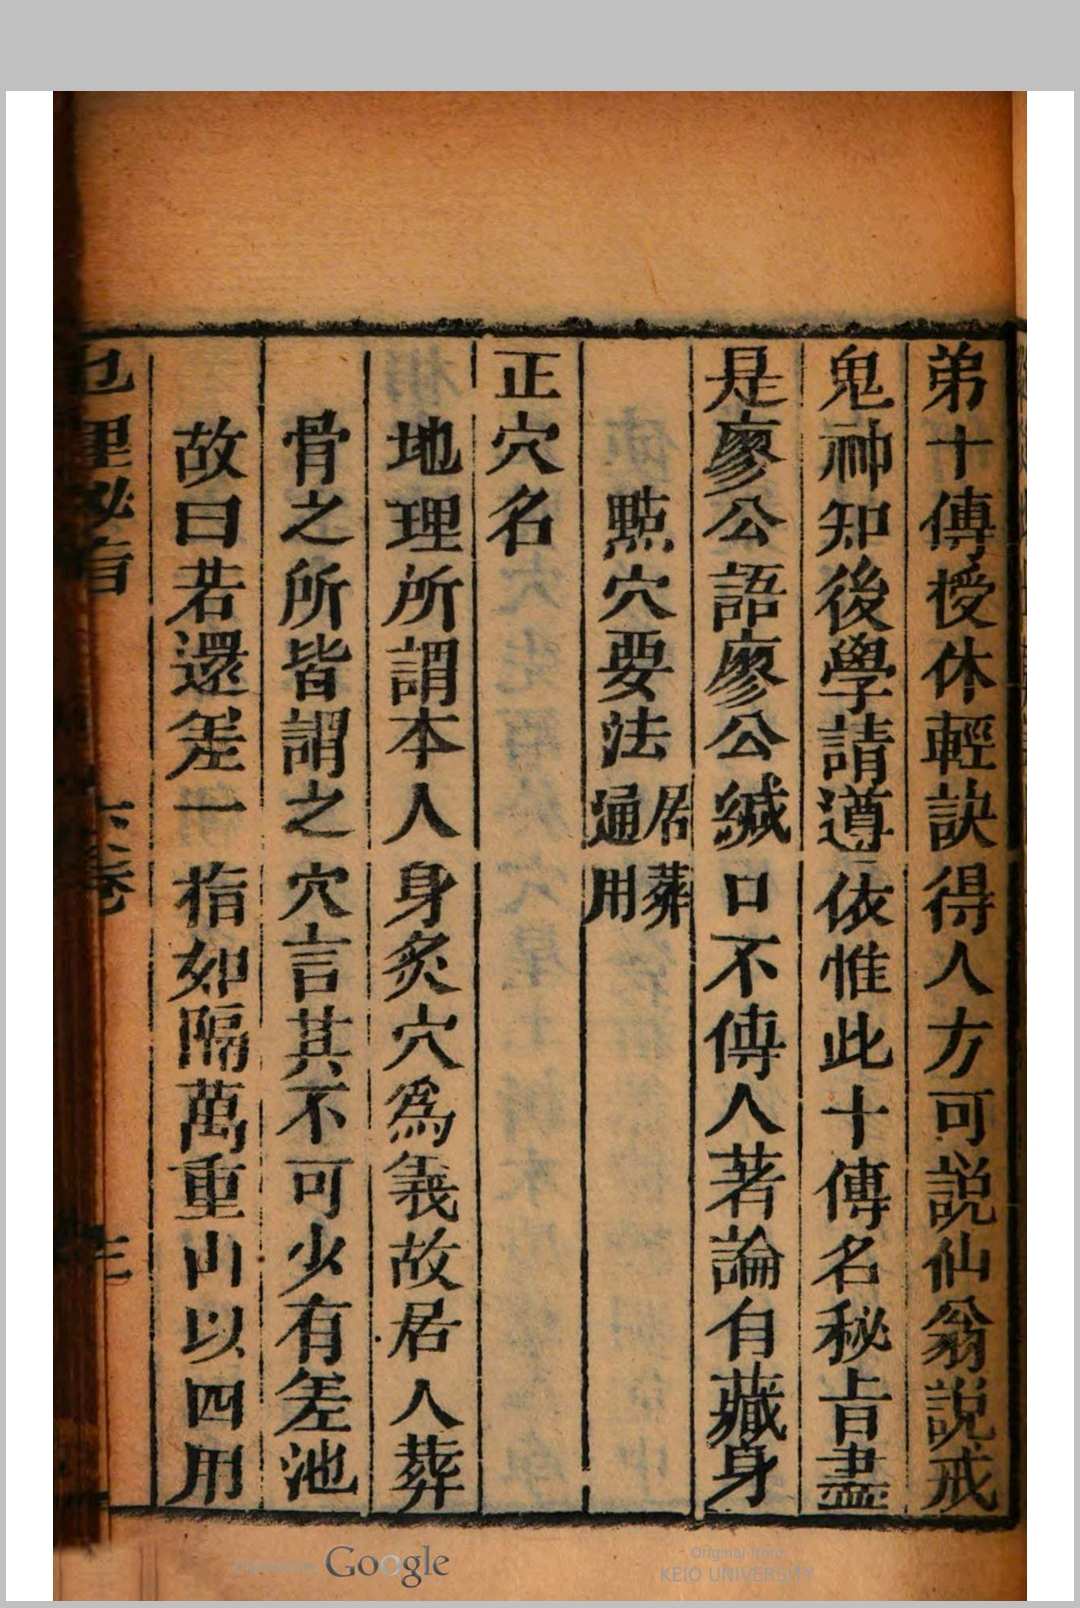 弟十傳授休輕訣得人方可説仙翁説戒
鬼神知後學請遵依惟此十傳名秘旨盡
是廖公語廖公緘口不傳人著論有藏身
㸃穴要法居葬通用
正穴名
地理所謂本人身炙穴爲義故居人葬
骨之所皆謂之穴言其不可少有差池
故曰若還差一指如隔萬重山以四用
地理秘旨
六卷
三
Google
Original from
KEIO UNIVERSITY